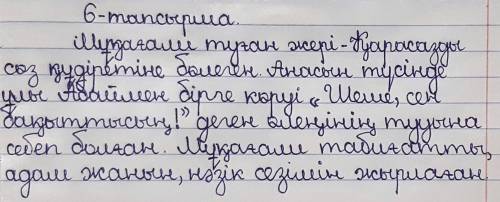 6-тапсырма.
Мұқағали туған жері-Қарасазды
сөз құдіретіне бөлеген. Анасын түсінде
ұлы Абаймен бірге көруі „Шеше, сен
бақыттысың!" деген өлеңінің тууына
себеп болған. Мұқағали табиғатты,
адам жанын, нәзік сезімін жырлаған.